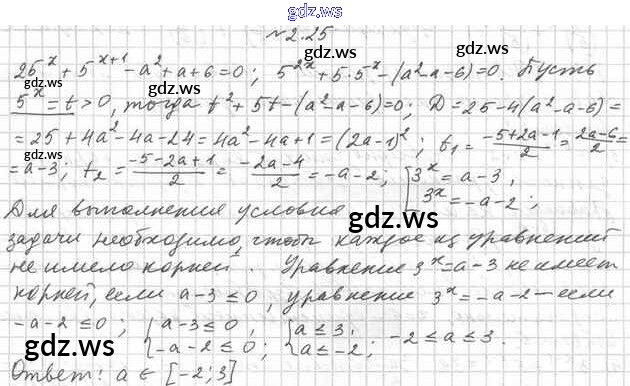 gdz.ws
№2.25
25^x + 5^{x+1} - a^2 + a + 6 = 0; 5^{2x} + 5·5^x - (a^2 - a - 6) = 0. Пусть
gdz.ws gdz.ws
5^x = t > 0, тогда t^2 + 5t - (a^2 - a - 6) = 0; D = 25 - 4(a^2 - a - 6) =
= 25 + 4a^2 - 4a - 24 = 4a^2 - 4a + 1 = (2a-1)^2; t_1 = (-5+2a-1)/2 = (2a-6)/2 =
= a-3; t_2 = (-5-2a+1)/2 = (-2a-4)/2 = -a-2; { 3^x = a-3,
3^x = -a-2;
Для выполнения условия
gdz.ws
задачи необходимо, чтобы каждое из уравнений
не имело корней. Уравнение 3^x = a-3 не имеет
корней, если a-3 ≤ 0, уравнение 3^x = -a-2 — если
-a-2 ≤ 0; { a-3 ≤ 0, { a ≤ 3, -2 ≤ a ≤ 3.
-a-2 ≤ 0; a ≤ -2;
gdz.ws gdz.ws
Ответ: a ∈ [-2; 3]
gdz.ws